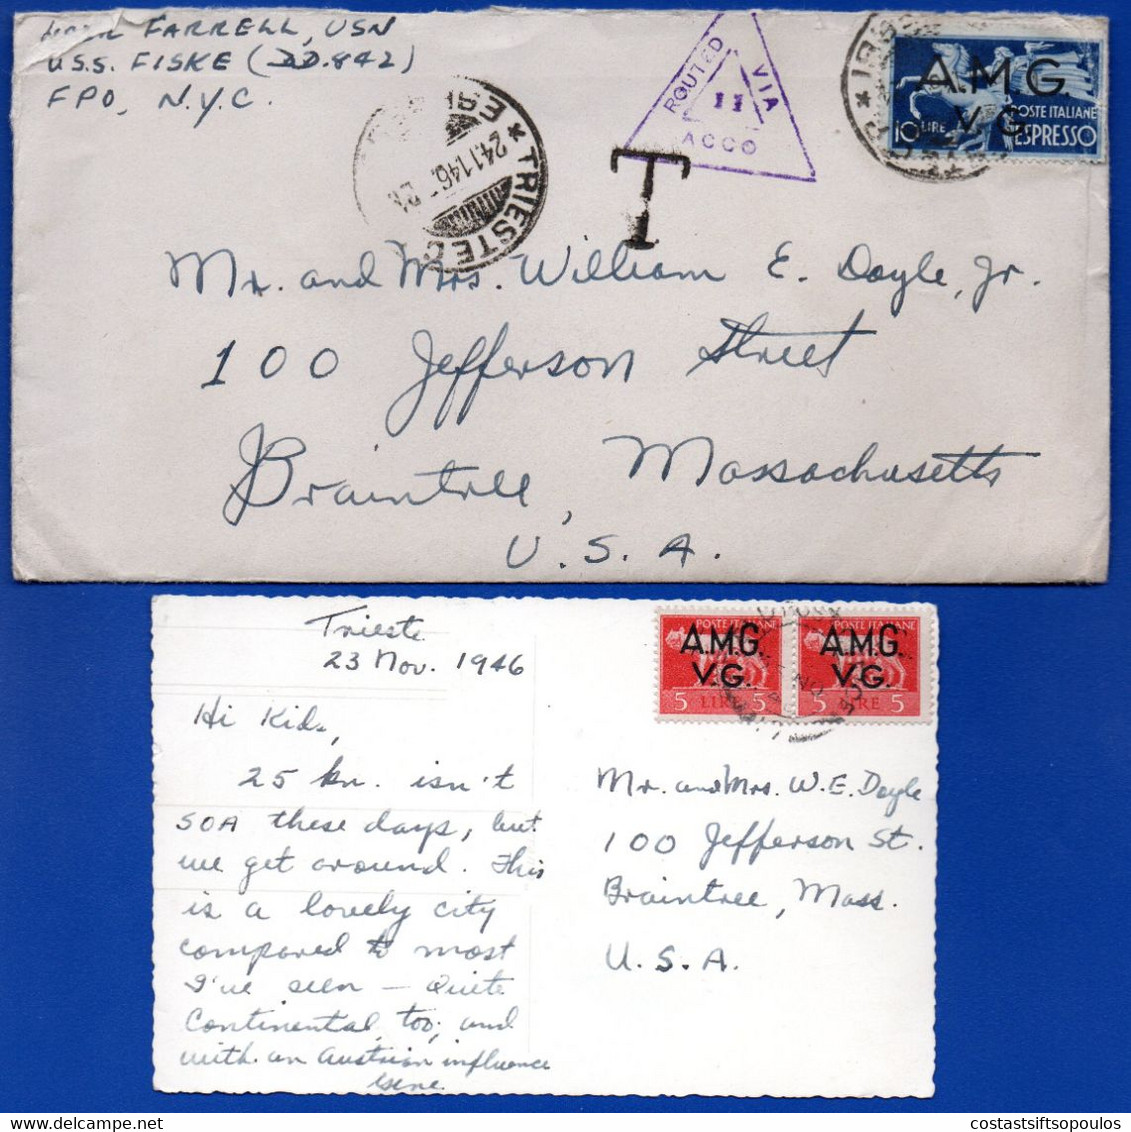 FARRELL, USN
U.S.S. FISKE (DD.842)
FPO, N.Y.C.
* TRIESTE C
24.11.46
ROUTED VIA
11
ACCO
T
A.M.G.
V.G.
POSTE ITALIANE
10 LIRE ESPRESSO
Mr. and Mrs. William E. Doyle, Jr.
100 Jefferson Street
Braintree, Massachusetts
U.S.A.
Trieste
23 Nov. 1946
Hi Kids,
25 kn. isn't
SOA these days, but
we get around. This
is a lovely city
compared to most
I've seen – Quite
Continental, too, and
with an Austrian influence
Gene
POSTE ITALIANE
A.M.G.
V.G.
5 LIRE 5
POSTE ITALIANE
A.M.G.
V.G.
5 LIRE 5
Mr. and Mrs. W.E. Doyle
100 Jefferson St.
Braintree, Mass.
U.S.A.
costastsiftsopoulos
delcampe.net